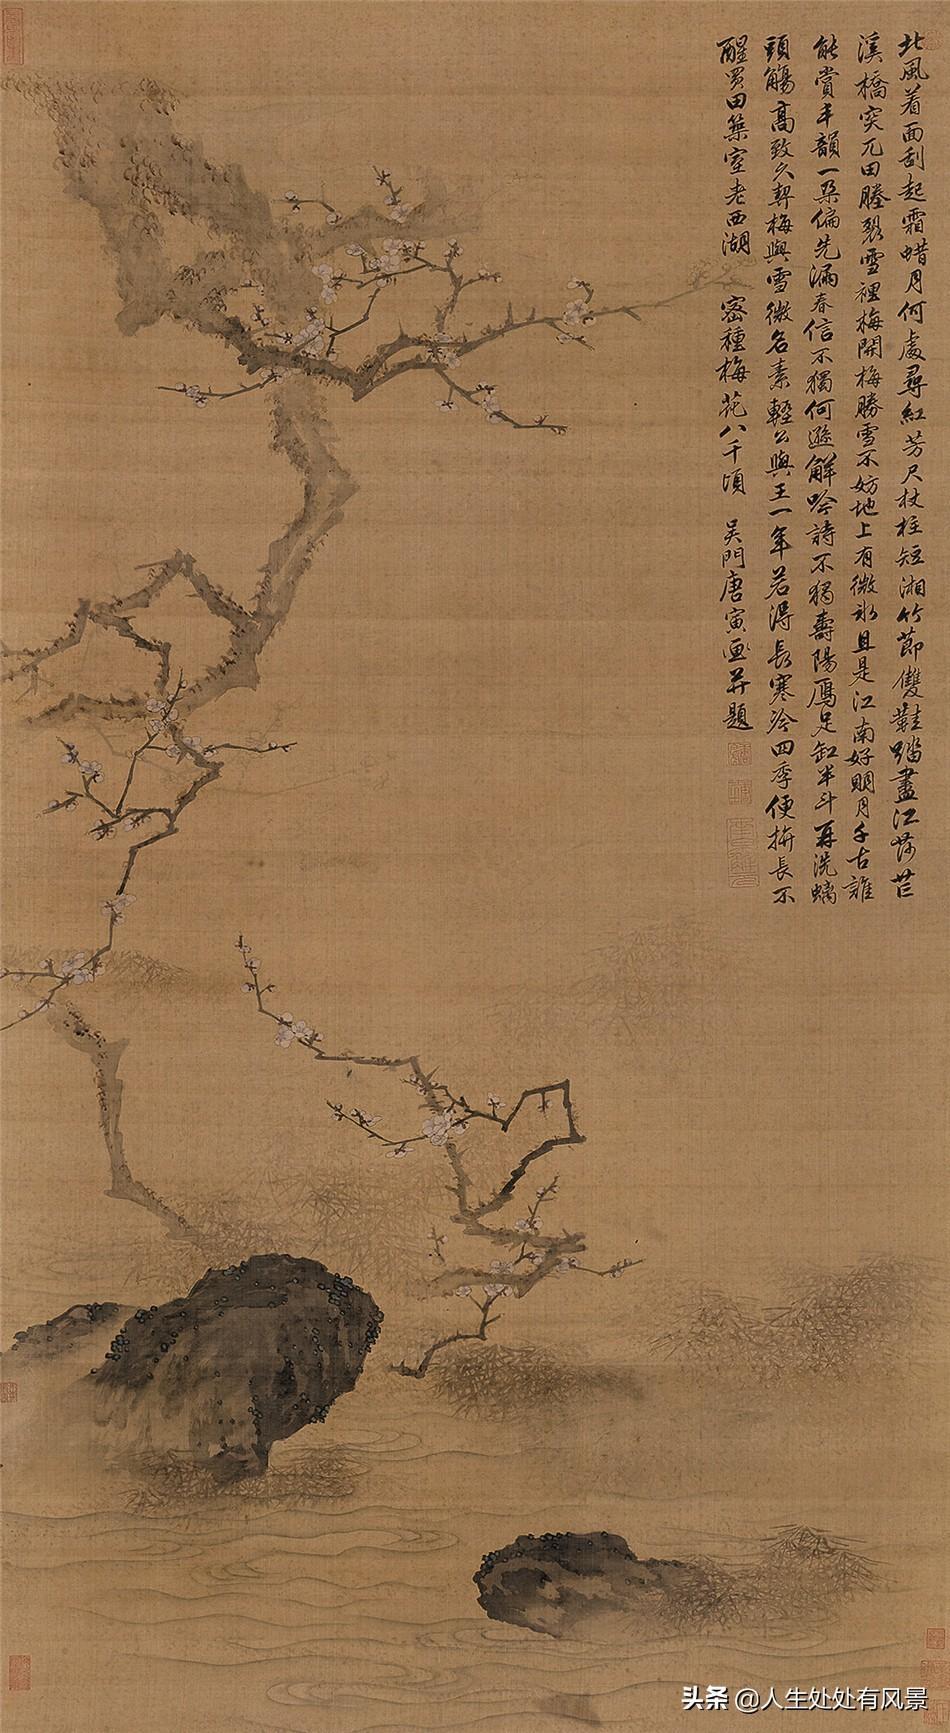 北風着面刮起霜蜡月何處尋紅芳尺杖柱短湘竹節雙鞋踏盡江莎芒
溪橋突兀田塍裂雪裡梅開梅勝雪不妨地上有微氷且是江南好明月千古誰
能賞丰韻一朶偏先漏春信不獨何遜解吟詩不獨壽陽鴈足缸半斗再洗螭
頭觴高致久契梅與雪微名素輕公與王一年若得長寒冷四季便拚長不
醒買田築室老西湖 密種梅花八千頃 吳門唐寅画并題
头条 @人生处处有风景